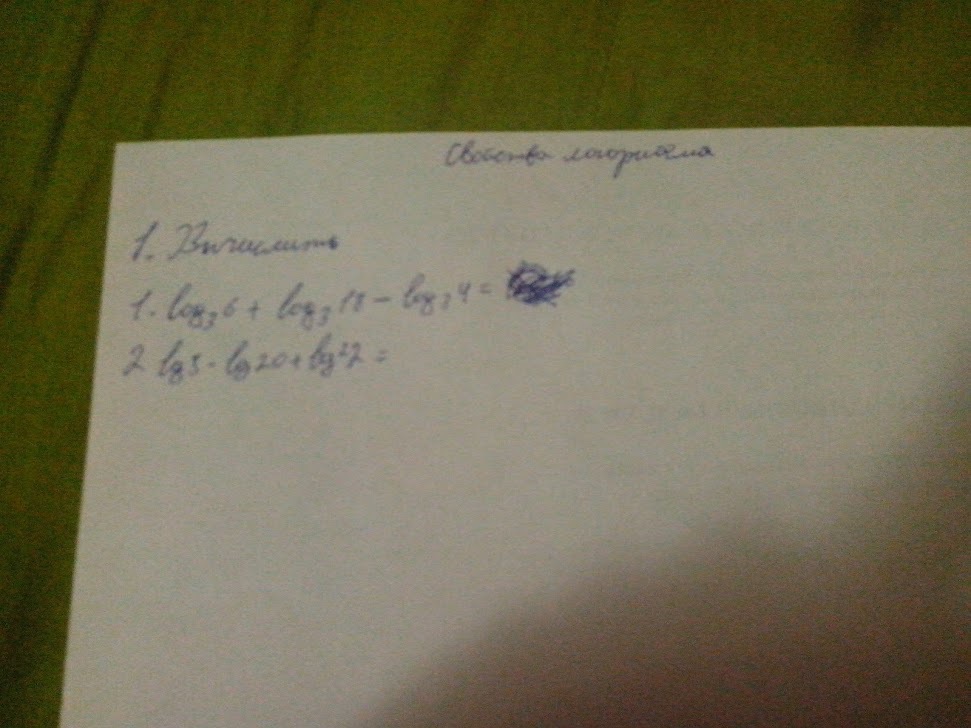 Свойства логорифма
1. Вычислить
1. log₃6 + log₃18 − log₃4 =
2 lg5 · lg20 + lg²2 =